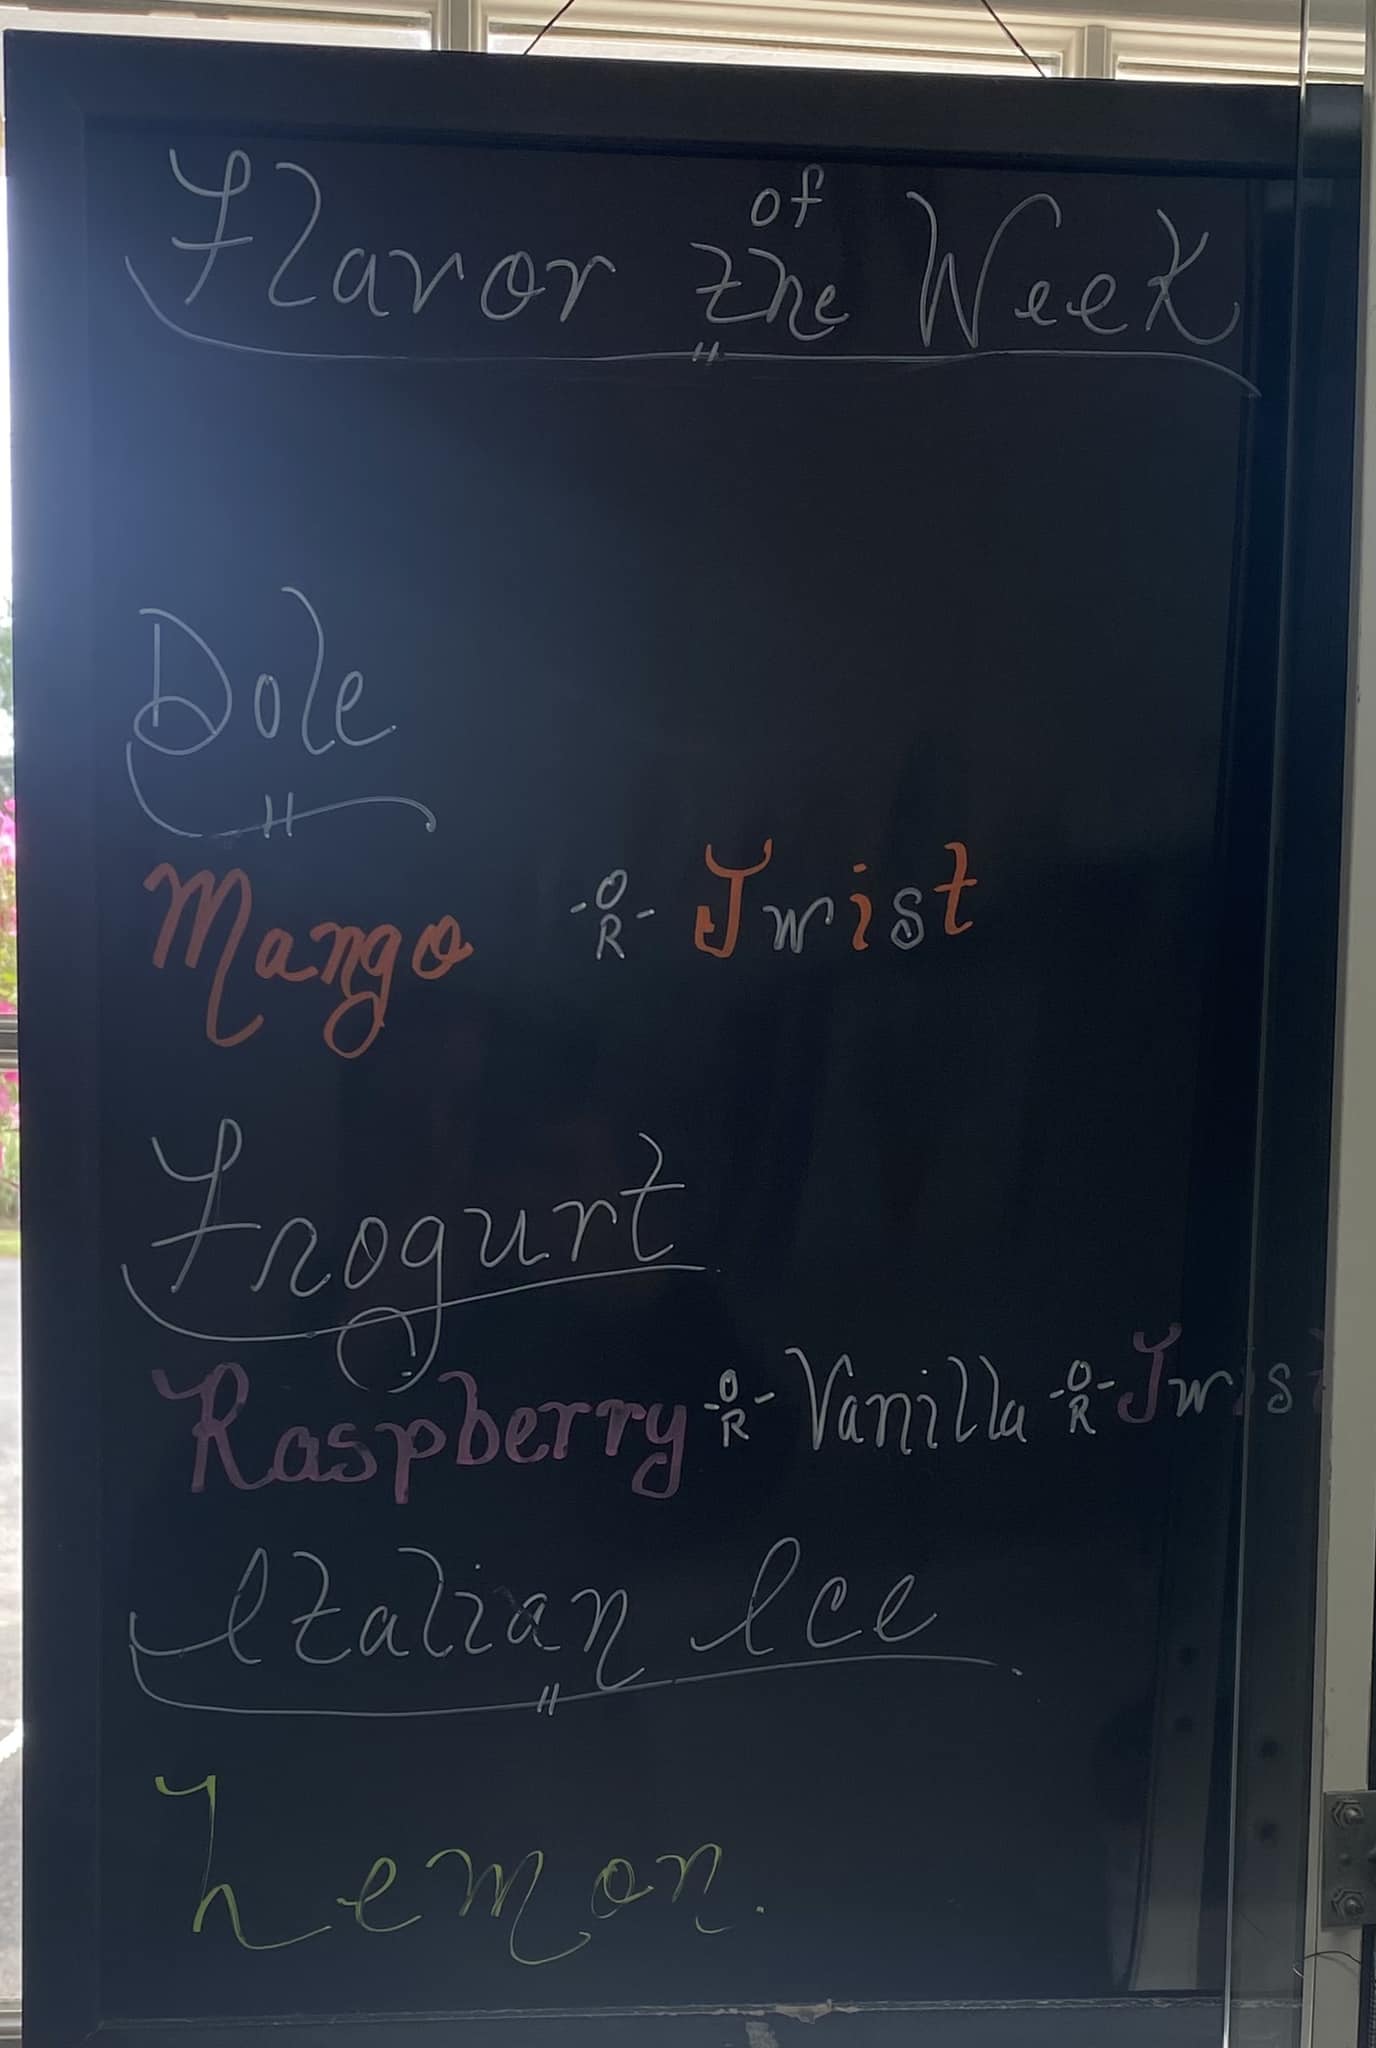 Flavor of the Week
Dole
Mango -OR- Twist
Frogurt
Raspberry -OR- Vanilla -OR- Twist
Italian Ice
Lemon.